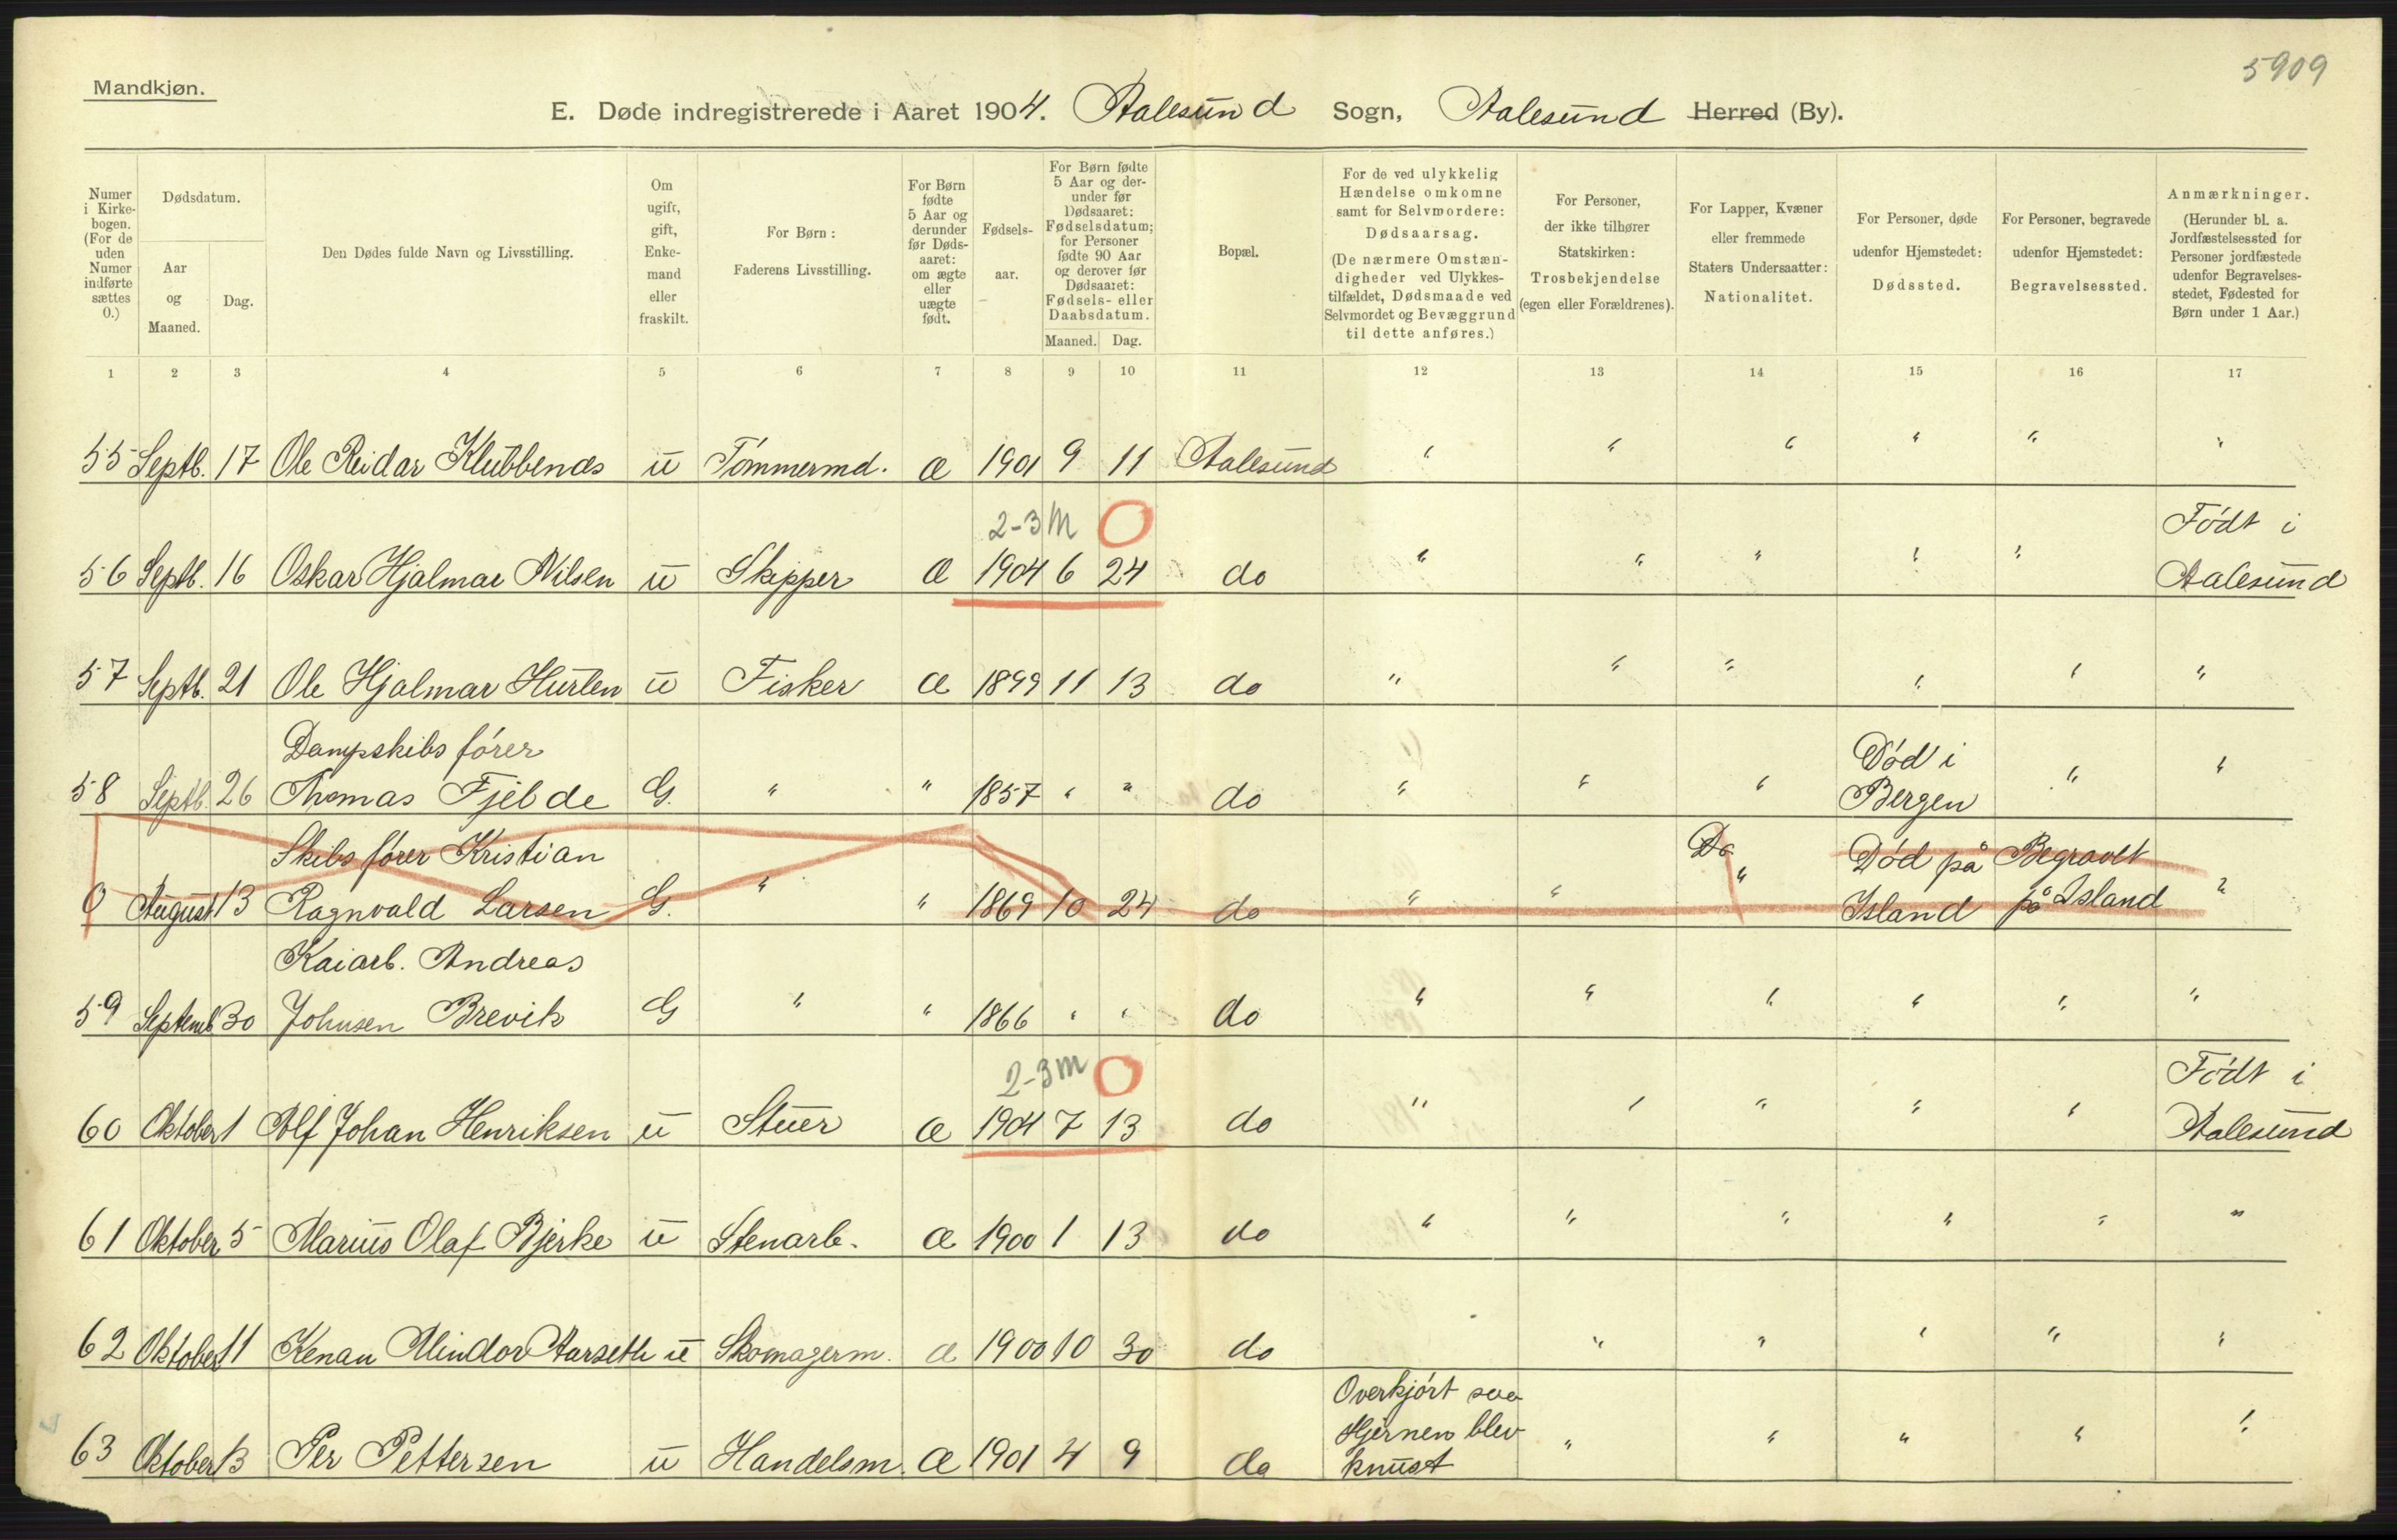 5909
Mandkjøn.
E. Døde indregistrerede i Aaret 1904. Aalesund Sogn, Aalesund Herred (By).
Numer i Kirkebogen. (For de uden Numer indførte sættes 0.)
Dødsdatum.
Aar og Maaned.
Dag.
Den Dødes fulde Navn og Livsstilling.
Om ugift, gift, Enkemand eller fraskilt.
For Børn: Faderens Livsstilling.
For Børn fødte 5 Aar og derunder før Dødsaaret: om ægte eller uægte født.
Fødselsaar.
For Børn fødte 5 Aar og derunder før Dødsaaret: Fødselsdatum; for Personer fødte 90 Aar og derover før Dødsaaret: Fødsels- eller Daabsdatum.
Maaned. Dag.
Bopæl.
For de ved ulykkelig Hændelse omkomne samt for Selvmordere: Dødsaarsag. (De nærmere Omstændigheder ved Ulykkestilfældet, Dødsmaade ved Selvmordet og Bevæggrund til dette anføres.)
For Personer, der ikke tilhører Statskirken: Trosbekjendelse (egen eller Forældrenes).
For Lapper, Kvæner eller fremmede Staters Undersaatter: Nationalitet.
For Personer, døde udenfor Hjemstedet: Dødssted.
For Personer, begravede udenfor Hjemstedet: Begravelsessted.
Anmærkninger. (Herunder bl. a. Jordfæstelsessted for Personer jordfæstede udenfor Begravelsesstedet, Fødested for Børn under 1 Aar.)
1 2 3 4 5 6 7 8 9 10 11 12 13 14 15 16 17
55 Septb. 17 Ole Reidar Klubbenæs u Tømmermd. Æ 1901 9 11 Aalesund " " " " " "
2-3 M O Født i
56 Septb. 16 Oskar Hjalmar Nilsen u Skipper Æ 1904 6 24 do " " " " " Aalesund
57 Septb. 21 Ole Hjalmar Hurlen u Fisker Æ 1899 11 13 do " " " " " "
Dampskibsfører Død i
58 Septb. 26 Thomas Fjelde G. " " 1857 " " do " " " Bergen " "
Skibsfører Kristian Do Død på Begravet
0 August 13 Ragnvald Larsen G. " " 1869 10 24 do " " " Island på Island "
Kaiarb. Andreas
59 Septemb 30 Johnsen Brevik G " " 1866 " " do " " " " " "
2-3 m O Født i
60 Oktober 1 Alf Johan Henriksen u Stuer Æ 1904 7 13 do " " " " " Aalesund
61 Oktober 5 Marius Olaf Bjerke u Stenarb. Æ 1900 1 13 do " " " " " "
62 Oktober 11 Kenan Mindor Aarseth u Skomagerm. Æ 1900 10 30 do " " " " "
Overkjørt saa
Hjernen blev
63 Oktober 13 Per Pettersen u Handelsm. Æ 1901 4 9 do knust " " " " "